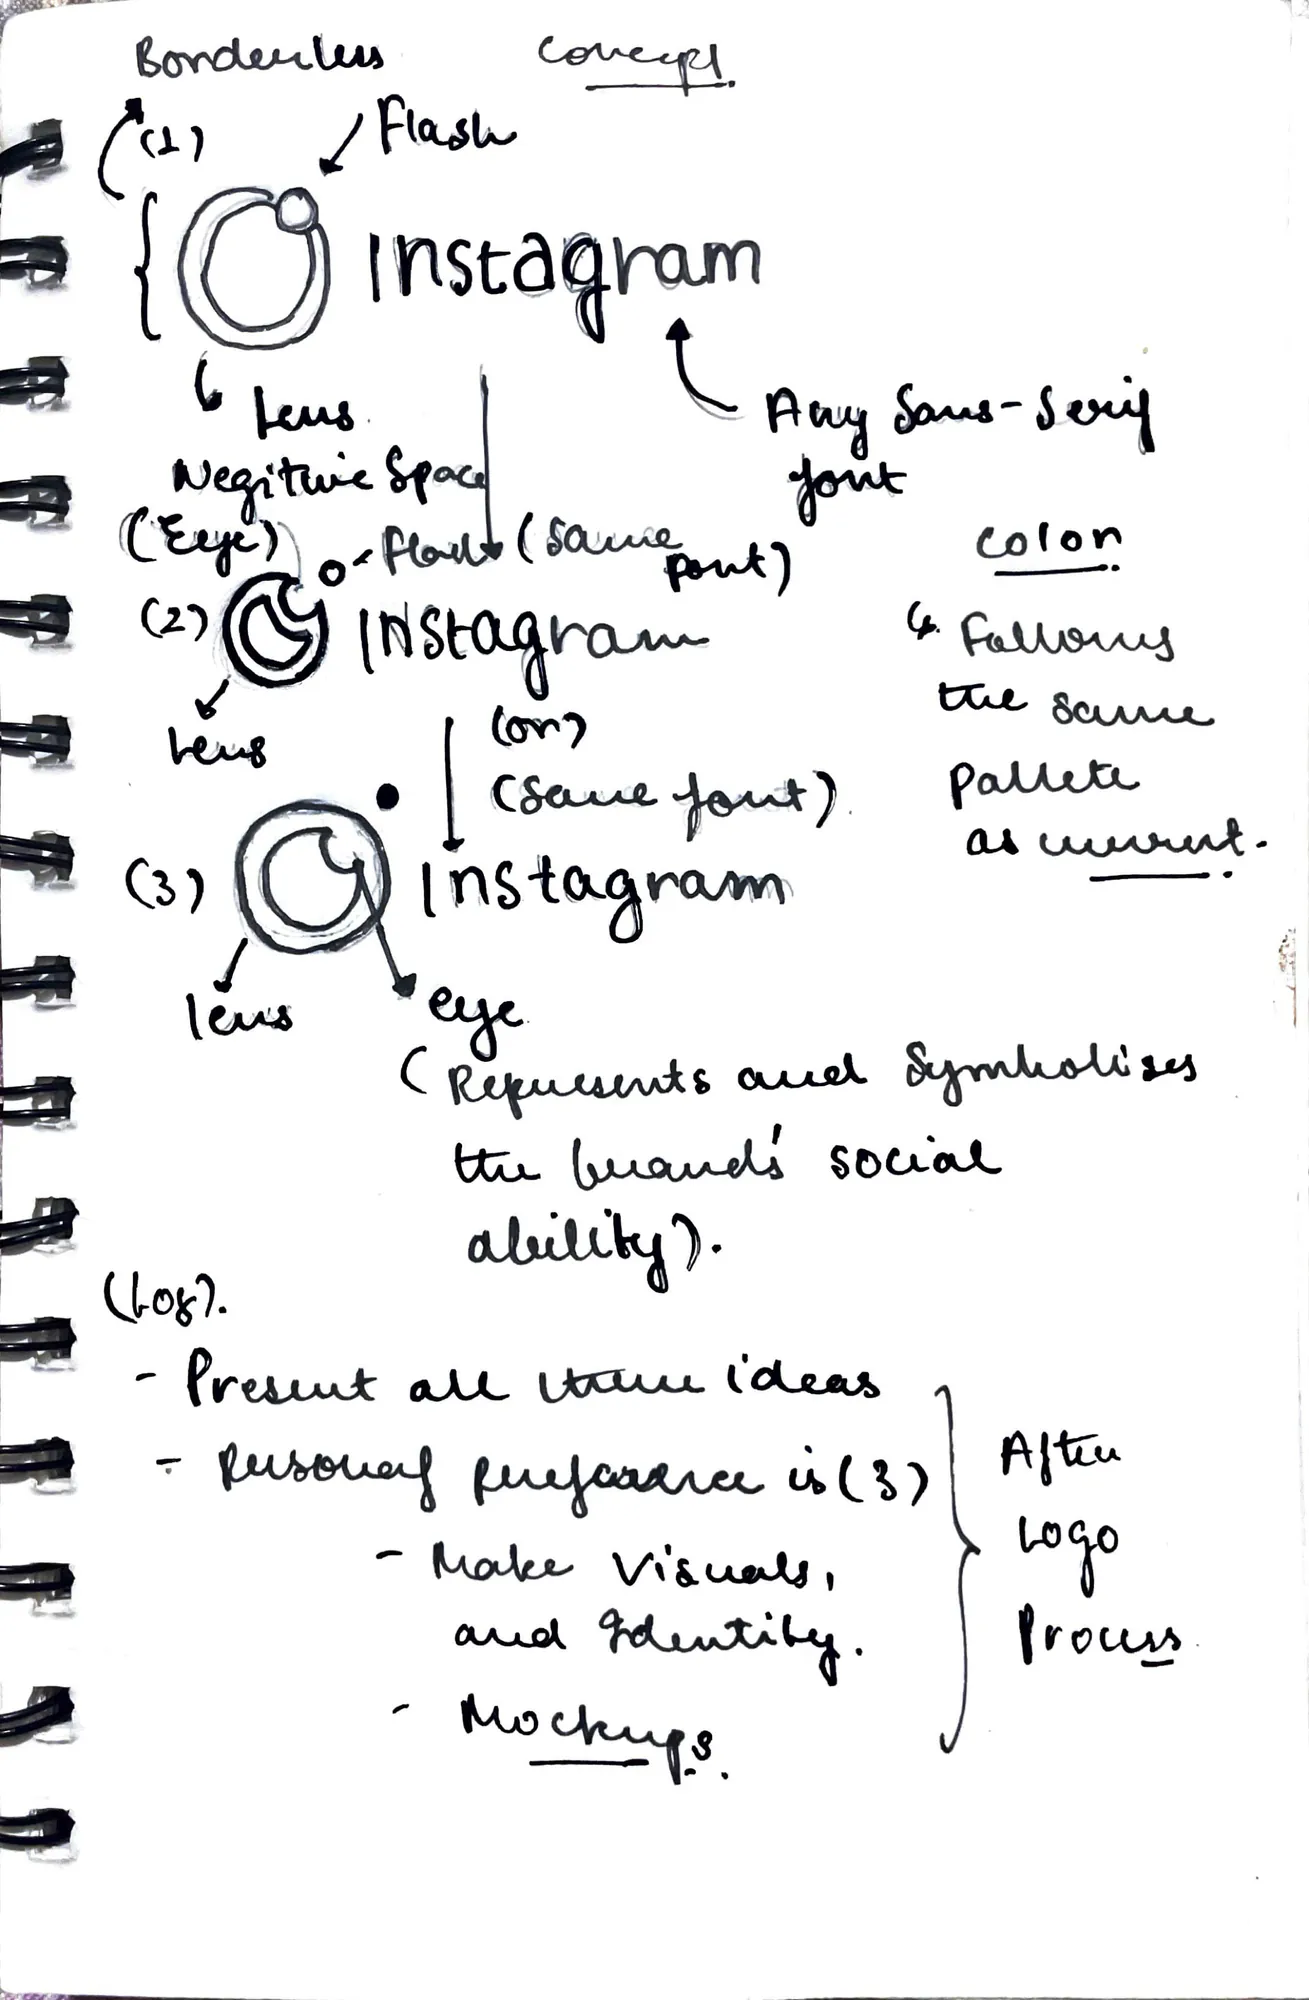 Borderless Concept
(1) Flash
Instagram
Lens
Any Sans-Serif
font
Negitive Space
(Eye) Flash (same
font)
(2) Instagram
Lens
Color
Follows
the same
pallete
as current.
(or)
(same font)
(3) Instagram
lens
eye
(Represents and Symbolises
the brands' social
ability).
(Log).
- Present all three ideas
- Personal preference is (3)
- Make Visuals,
and Identity.
- Mockups.
After
Logo
Process